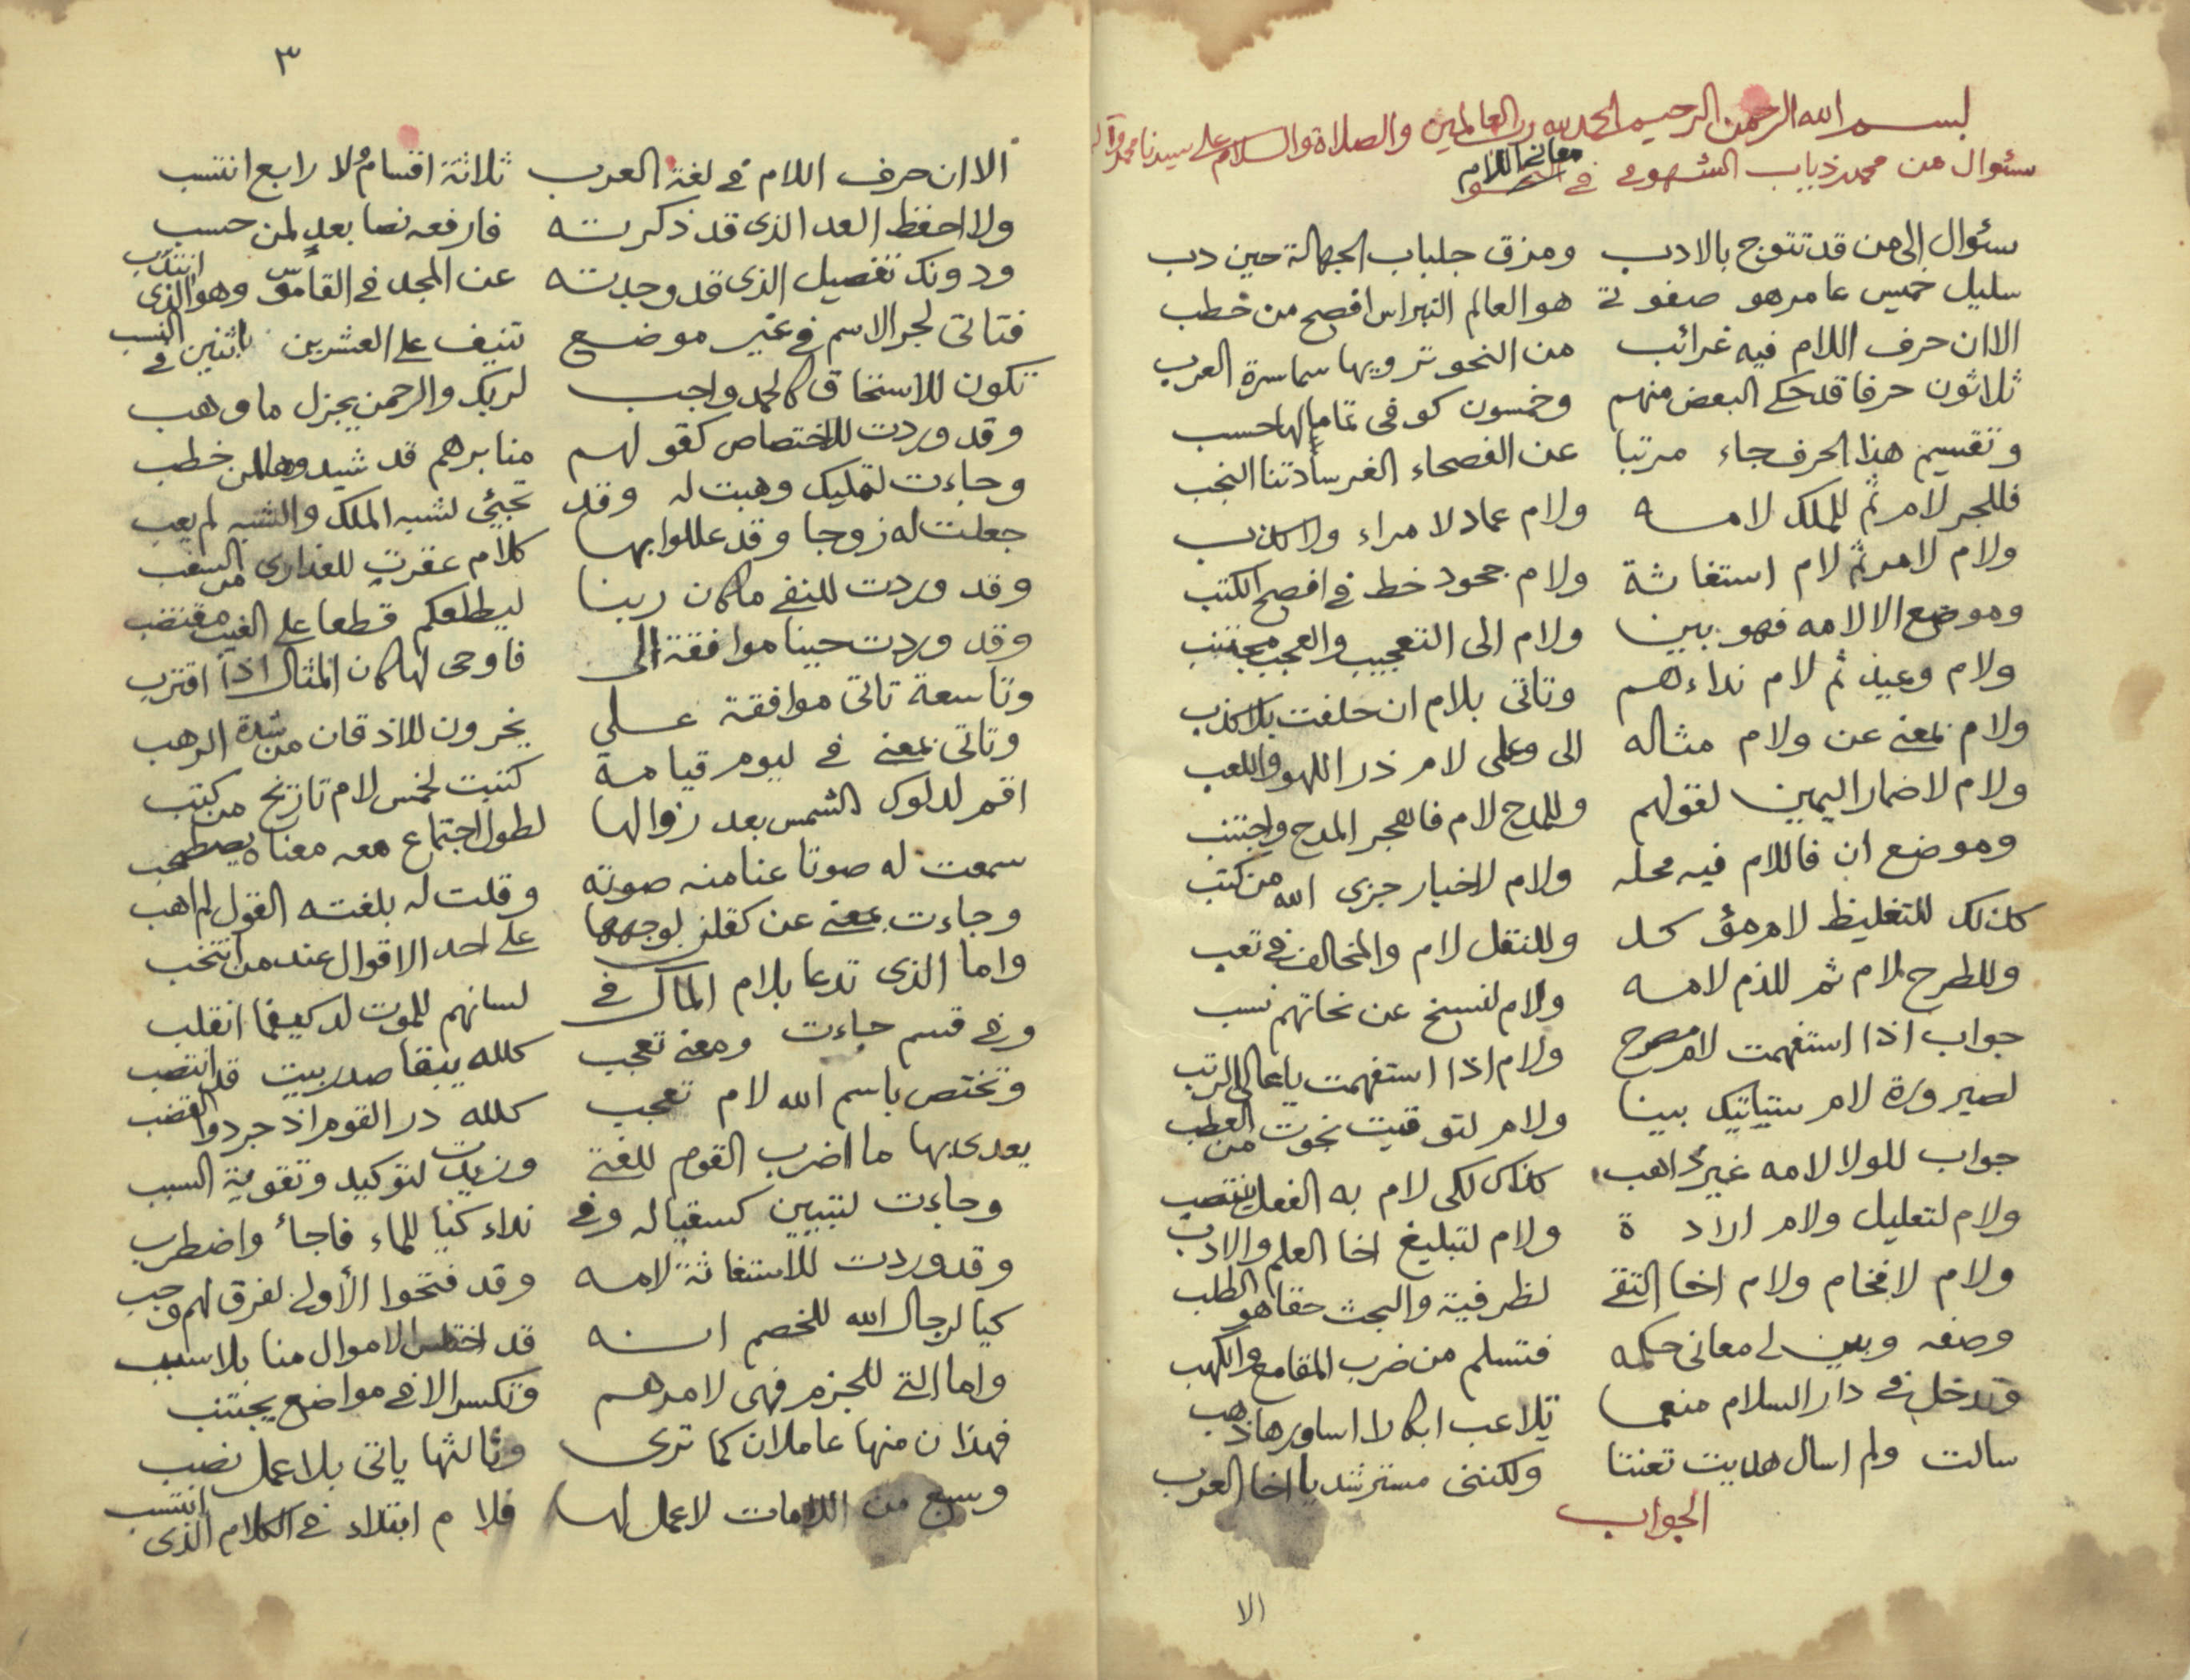 بسم الله الرحمن الرحيم الحمد لله رب العالمين والصلاة والسلام على سيدنا محمد وآله
سئوال من محمد ذياب الشهومي في معاني اللام
سئوال الى من قد تتوج بالادب ومزق جلباب الجهالة حين دب
سليل خميس عامر هو صفوة هو العالم النبراس افصح من خطب
الا ان حرف اللام فيه غرائب من النحو ترويها سماسرة العرب
ثلاثون حرفا قد حكى البعض منهم وخمسون كوفى تماما لها حسب
وتقسيم هذا الحرف جاء مرتبا عن الفصحاء الغر سادتنا النجب
فللجر لام ثم للملك لامه ولام عماد لا مراء ولا كذب
ولام لامر ثم لام استغاثة ولام جحود خط في افصح الكتب
وموضع الا لامه فهو بين ولام الى التعجيب والعجب مجتنب
ولام وعيد ثم لام نداءهم وتاتى بلام ان حلفت بلا كذب
ولام بمعنى عن ولام مثاله الى وعلى لام ذر اللهو واللعب
ولام لاضمار اليمين لقولهم وللمدح لام فاهجر المدح واجتنب
وموضع ان فاللام فيه محله ولام لاخبار جزى الله من كتب
كذلك للتغليظ لام مؤكد وللنقل لام والمخالف في تعب
وللطرح لام ثم للذم لامه ولام لنسخ عن نحاتهم نسب
جواب اذا استفهمت لام مصرح ولام اذا استفهمت يا عالى الرتب
لصيرورة لام ستياتيك بينا ولام لتوقيت نجوت من العطب
جواب للولا لامه غير ذاهب كذاك لكى لام به الفعل ينتصب
ولام لتعليل ولام ارادة ولام لتبليغ اخا العلم والادب
ولام لافخام ولام اخا التقى لظرفية والبحث حقا هو الطلب
وصفه وبين لى معانى حكمه فتسلم من ضرب المقامع والكهب
وتدخل في دار السلام منعما تلاعب ابكارا اساورها ذهب
سالت ولم اسال هديت تعنتا ولكننى مسترشد يا اخا العرب
الجواب
الا
٣
الا ان حرف اللام في لغة العرب ثلاثة اقسام ولا رابع انتسب
ولا احفظ العد الذى قد ذكرته فارفعه نصا بعد لمن حسب
ودونك تفصيل الذى قد وجدته عن المجد في القاموس وهو الذى انتدب
فتاتى لجر الاسم في غير موضع تنيف على العشرين باثنين في النسب
تكون للاستحقاق كالحمد واجب لربك والرحمن يجزل ما وهب
وقد وردت للاختصاص كقولهم منابرهم قد شيدوها لمن خطب
وجاءت لتمليك وهبت له وقد تجيئى لشبه الملك والشبه لم يعب
جعلت له زوجا وقد عللوا بها كلام عقرت للعذارى من السغب
وقد وردت للنفى ما كان ربنا ليطلعكم قطعا على الغيب مقتضب
وقد وردت حينا موافقة الى فاوحى لها كان المثال اذا اقترب
وتاسعة تاتى موافقة على يخرون للاذقان من شدة الرهب
وتاتى بمعنى في ليوم قيامة كتبت لخمس لام تاريخ من كتب
اقم لدلوك الشمس بعد زوالها لطول اجتماع معه معناه يصطحب
سمعت له صوتا عنا منه صوته وقلت له بلغته القول لم اهب
وجاءت بمعنى عن كقلن لوجهها على احد الاقوال عند من انتخب
واما الذى تدعا بلام المآل في لسانهم للموت لد كيفما انقلب
وفى قسم جاءت ومعنى تعجب كلله يبقا صدر بيت قد انتصب
وتختص باسم الله لام تعجب كلله در القوم اذ جردوا القضب
يعدى بها ما اضرب القوم للفتى وزيدت لتوكيد وتقوية السبب
وجاءت لتبيين كسقيا له وفى نداء كيا للماء فاجأ واضطرب
وقد وردت للاستغاثة لامه وقد فتحوا الأولى لفرق لهم وجب
كيا لرجال الله للخصم انه قد اختلس الاموال منا بلا سبب
واما التى للجزم فهى لامرهم وتكسر الا في مواضع يجتنب
فهذان منها عاملان كما ترى وثالثها ياتى بلا عمل نصب
وسبع من اللامات لا عمل لها فلام ابتداء في الكلام الذى انتسب